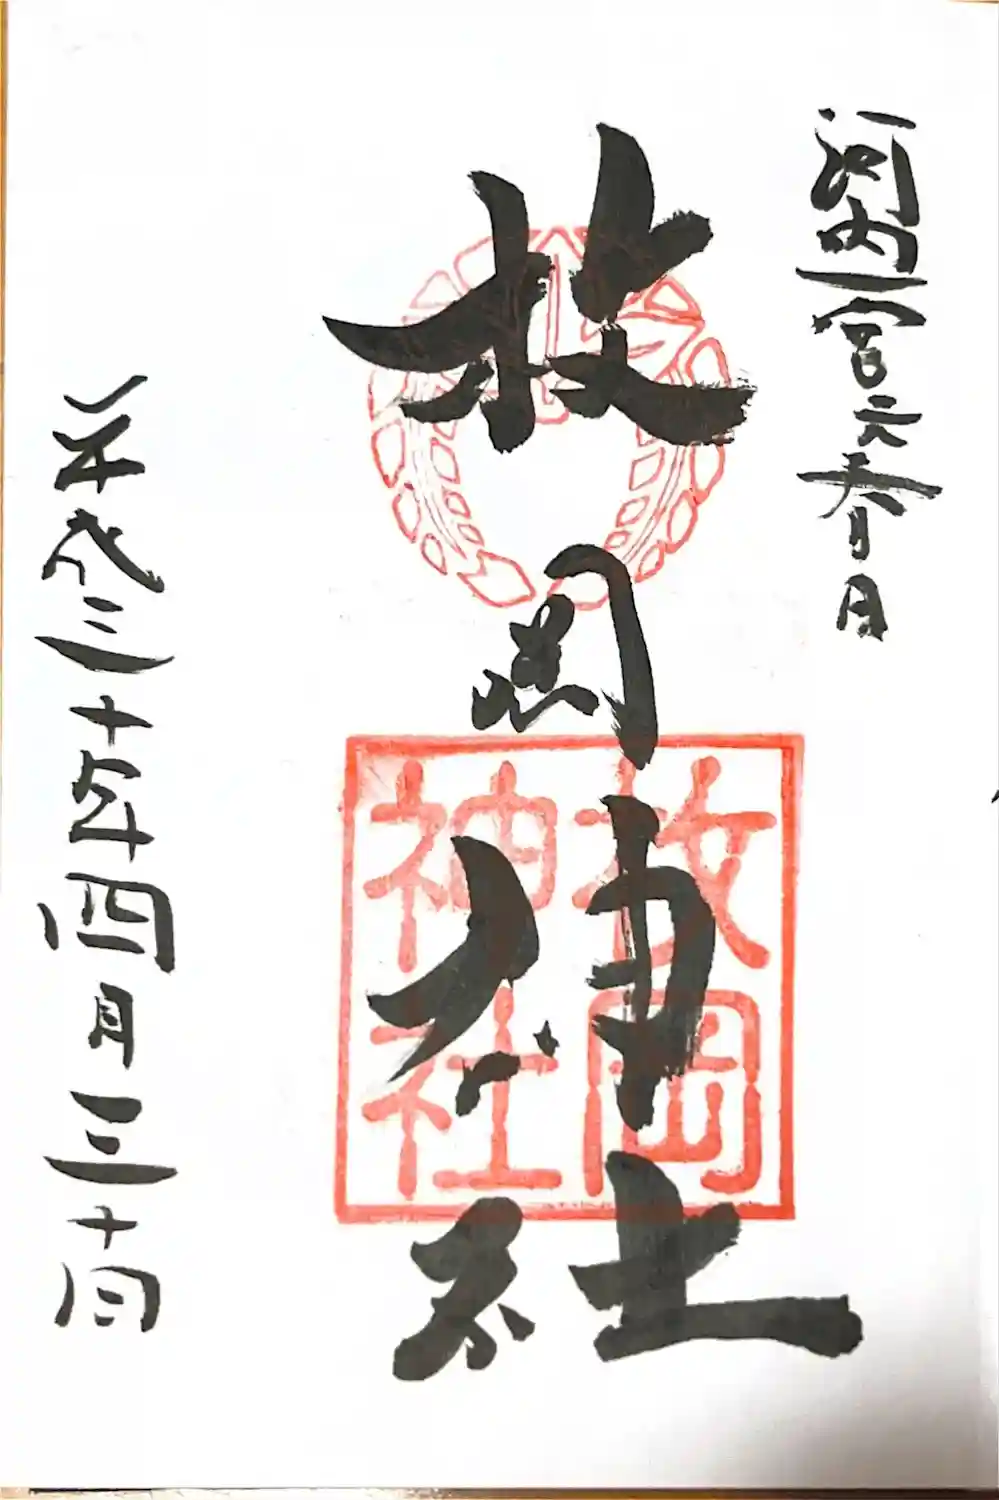 河内一宮元春日
枚岡神社
枚岡
神社
平成三十一年四月三十日